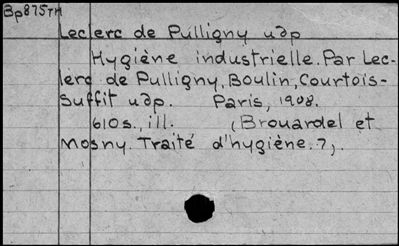 Bp875TM
Leclerc de Pulligny udp
Hygiène industrielle. Par Lec-
lerc de Pulligny, Boulin, Courtois-
Suffit udp. Paris, 1908.
610 s., ill. (Brouardel et
Mosny. Traité d'hygiène. 7).